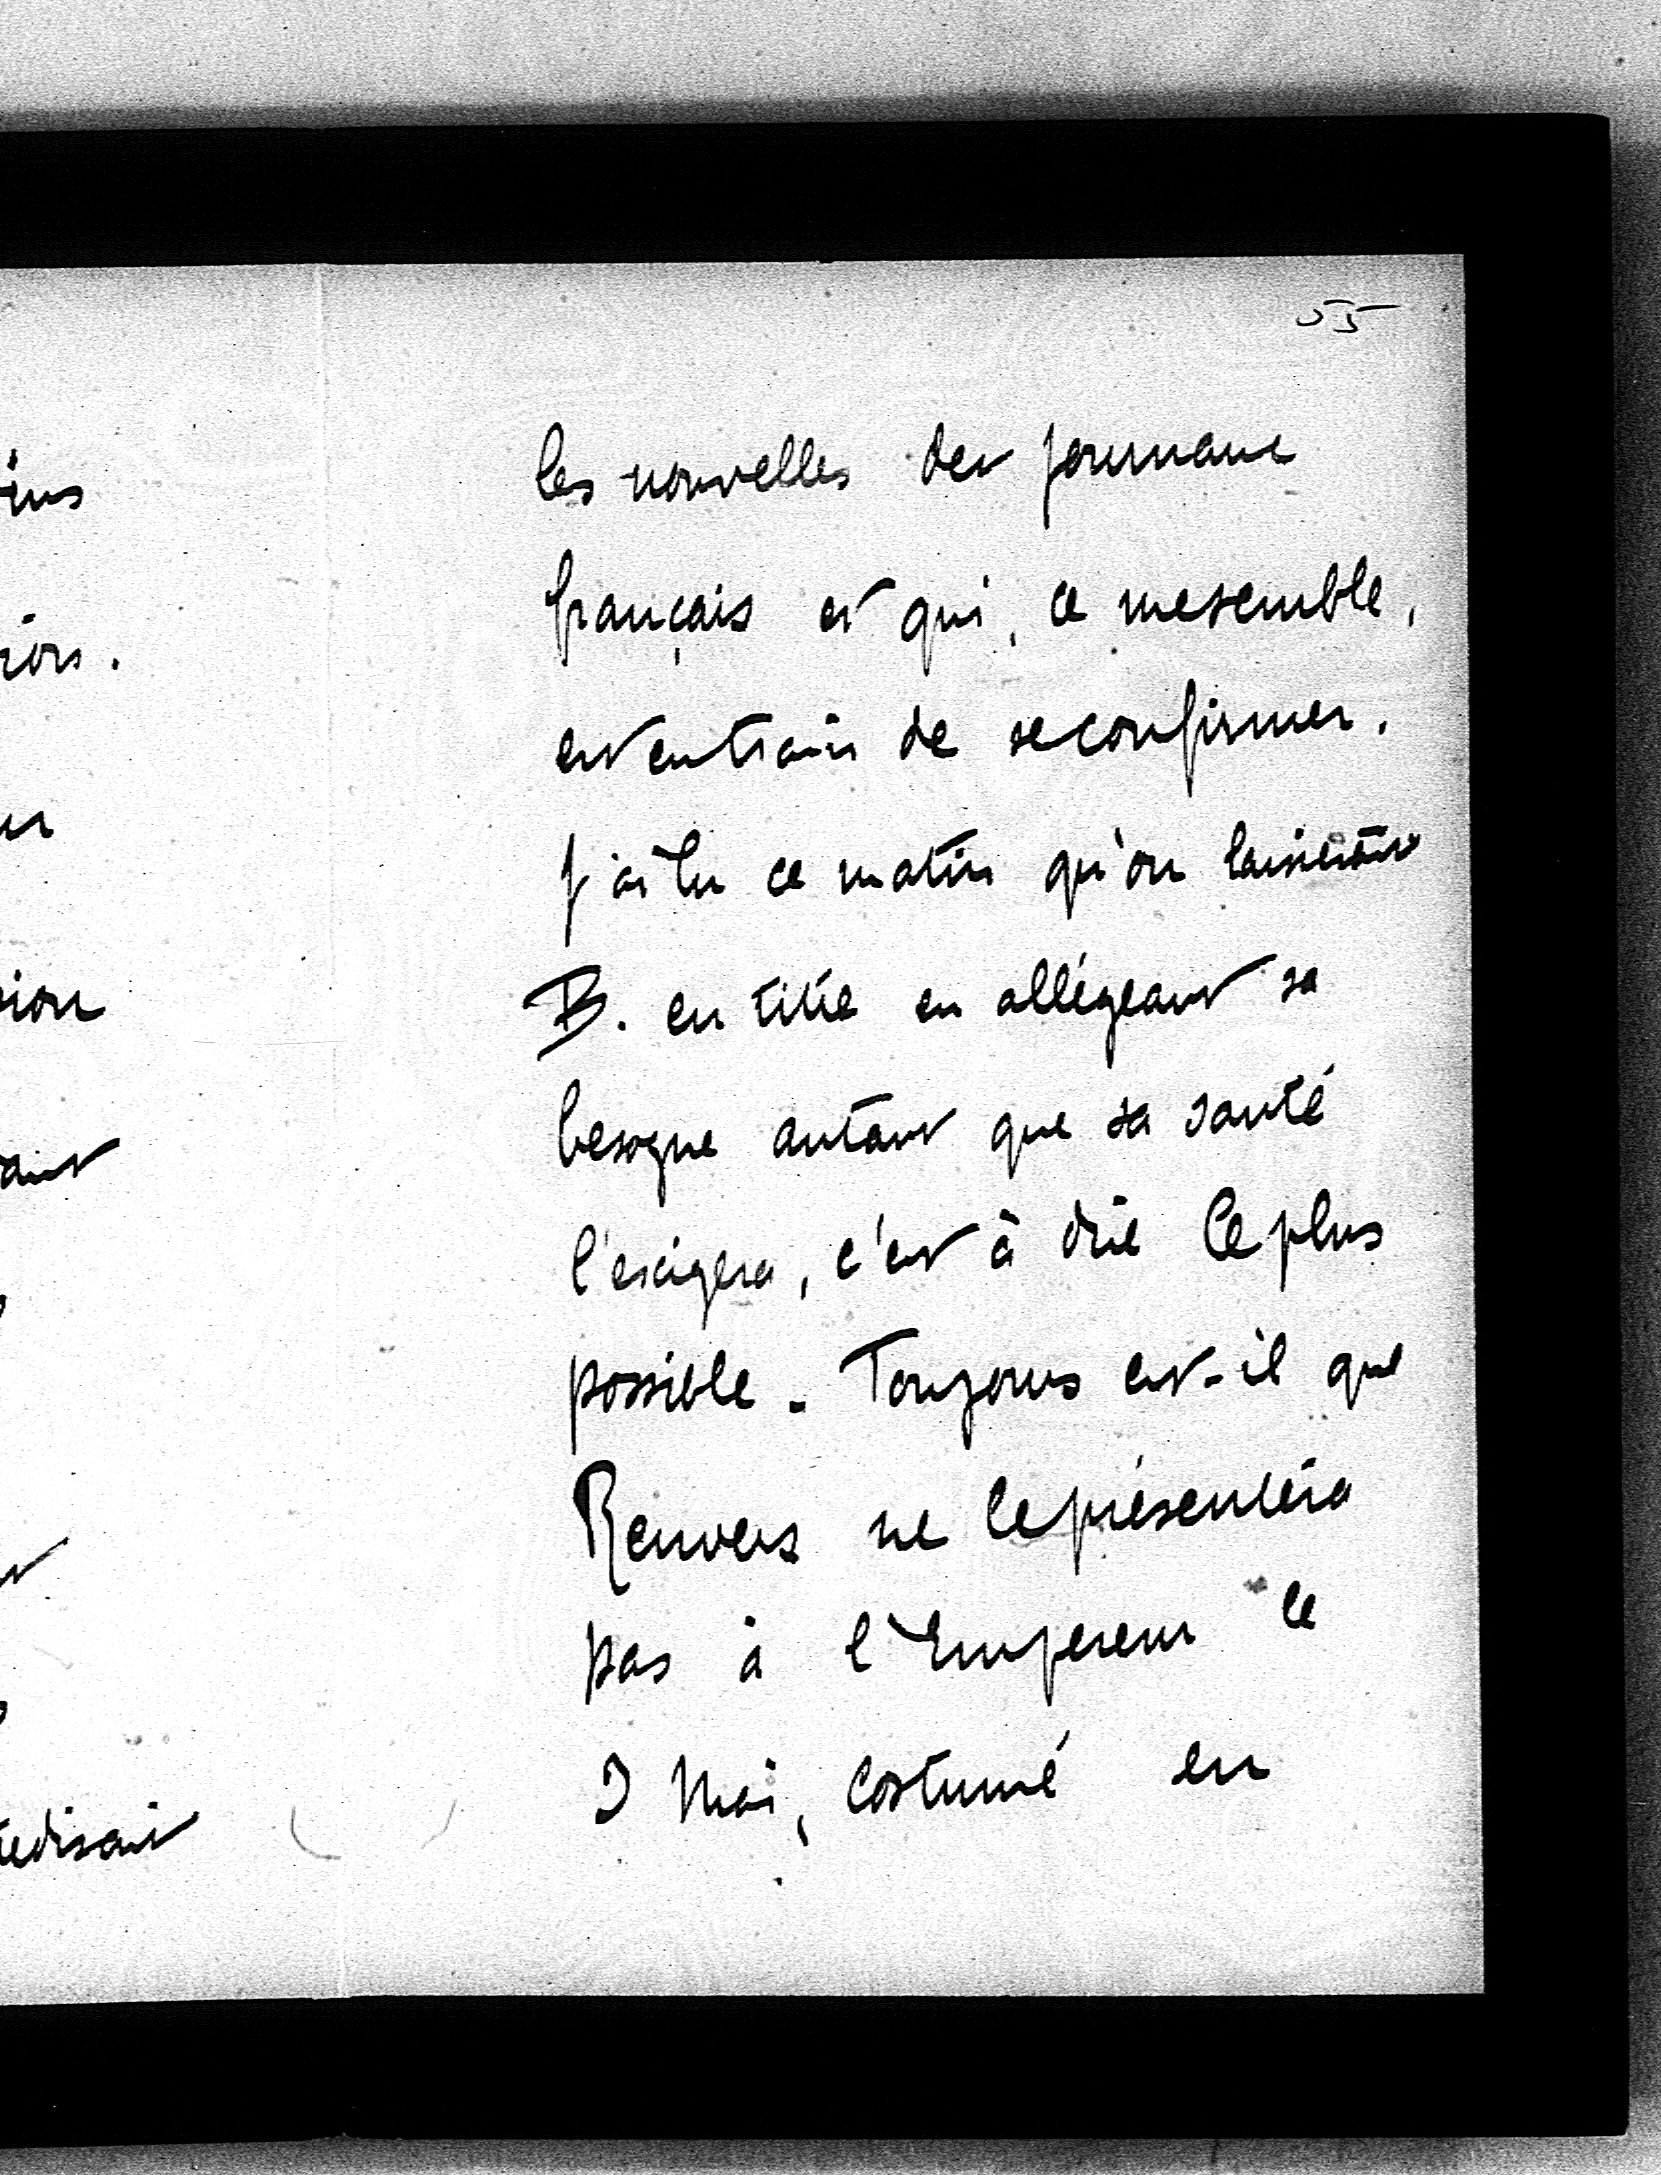 55
les nouvelles des journaux
français et qui, ce me semble,
est en train de se confirmer.
J'ai lu ce matin qu'on laisserait
B. en titre en allégeant sa
besogne autant que sa santé
l'exigera, c'est à dire le plus
possible. Toujours est-il que
Renvers ne le présentera
pas à l'Empereur le
Mai, costumé en